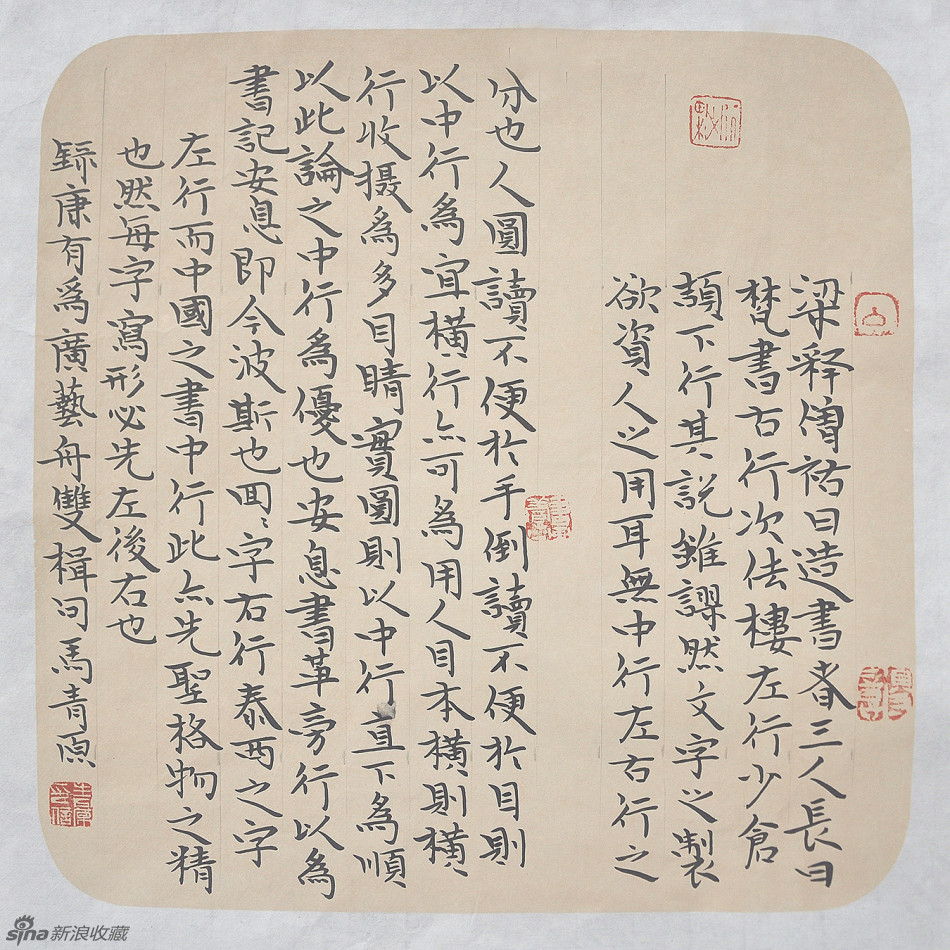 梁释僧祐曰造書者三人長曰
梵書右行次佉樓左行少倉
頡下行其説雖謬然文字之製
欲資人之用耳無中行左右行之
分也人圓讀不便於手倒讀不便於目則
以中行為宜橫行亦可為用人目本橫則橫
行收摄為多目睛實圓則以中行直下為順
以此論之中行為優也安息書革旁行以為
書記安息即今波斯也回〻字右行泰西之字
左行而中國之書中行此亦先聖格物之精
也然每字寫形必先左後右也
録康有為廣藝舟雙楫句馬青原
sina新浪收藏